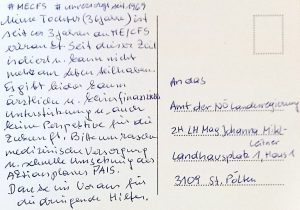 #MECFS #unversorgt seit 1969
Meine Tochter (3 Jahre) ist
seit 3 Jahren an ME/CFS
erkrankt. Seit dieser Zeit
u. kann nicht
mehr am Leben teilhaben.
Es gibt leider kaum
ärztliche u. keine finanzielle
Unterstützung u. auch
keine Perspektive für die
Zukunft. Bitte um rasche
medizinische Versorgung
u. schnelle Umsetzung des
Aktionsplanes PAIS.
Danke im Voraus für
die dringende Hilfe.
An das
Amt der NÖ Landesregierung
ZH LH Mag. Johanna Mikl-
Leitner
Landhausplatz 1, Haus 1
3109 St. Pölten